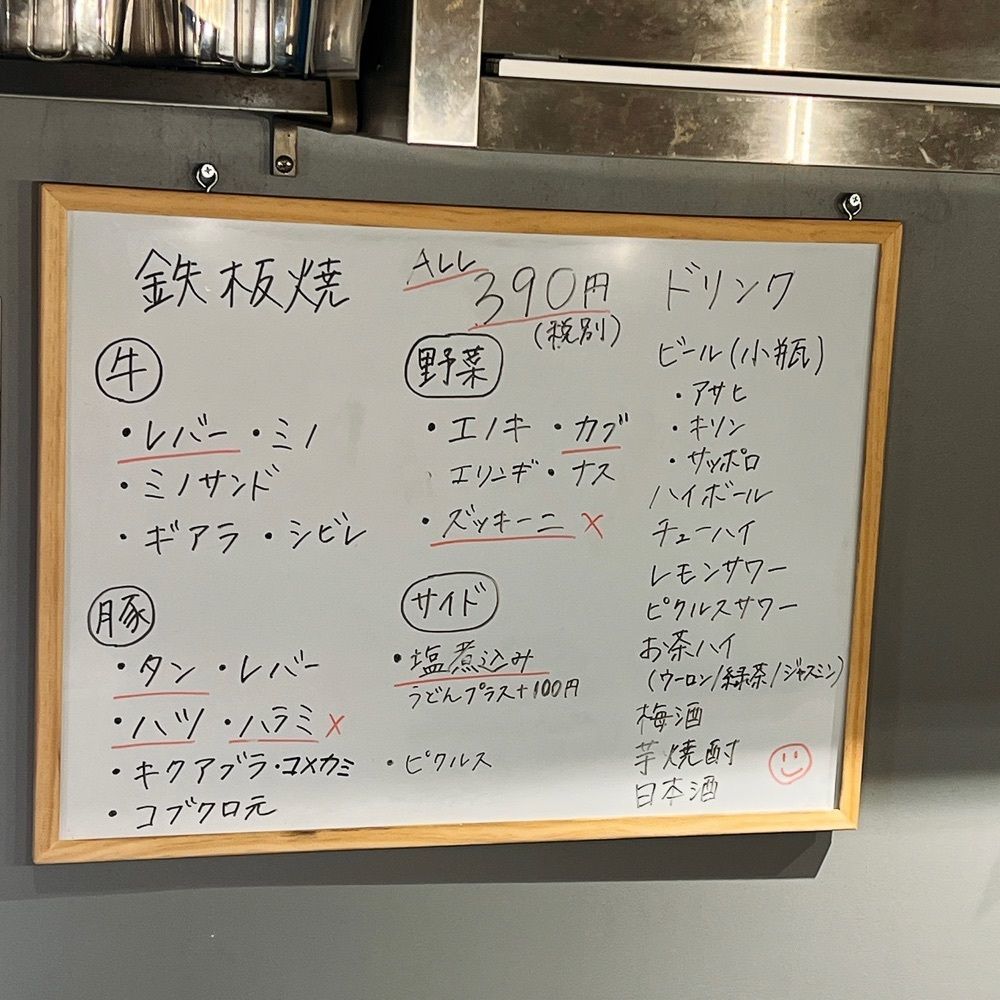 鉄板焼
ALL
390円
(税別)
牛
・レバー ・ミノ
・ミノサンド
・ギアラ ・シビレ
豚
・タン ・レバー
・ハツ ・ハラミ ×
・キクアブラ・コメカミ
・コブクロ元
野菜
・エノキ ・カブ
エリンギ・ナス
・ズッキーニ ×
サイド
・塩煮込み
うどんプラス+100円
・ピクルス
ドリンク
ビール(小瓶)
・アサヒ
・キリン
・サッポロ
ハイボール
チューハイ
レモンサワー
ピクルスサワー
お茶ハイ
(ウーロン/緑茶/ジャスミン)
梅酒
芋焼酎
日本酒